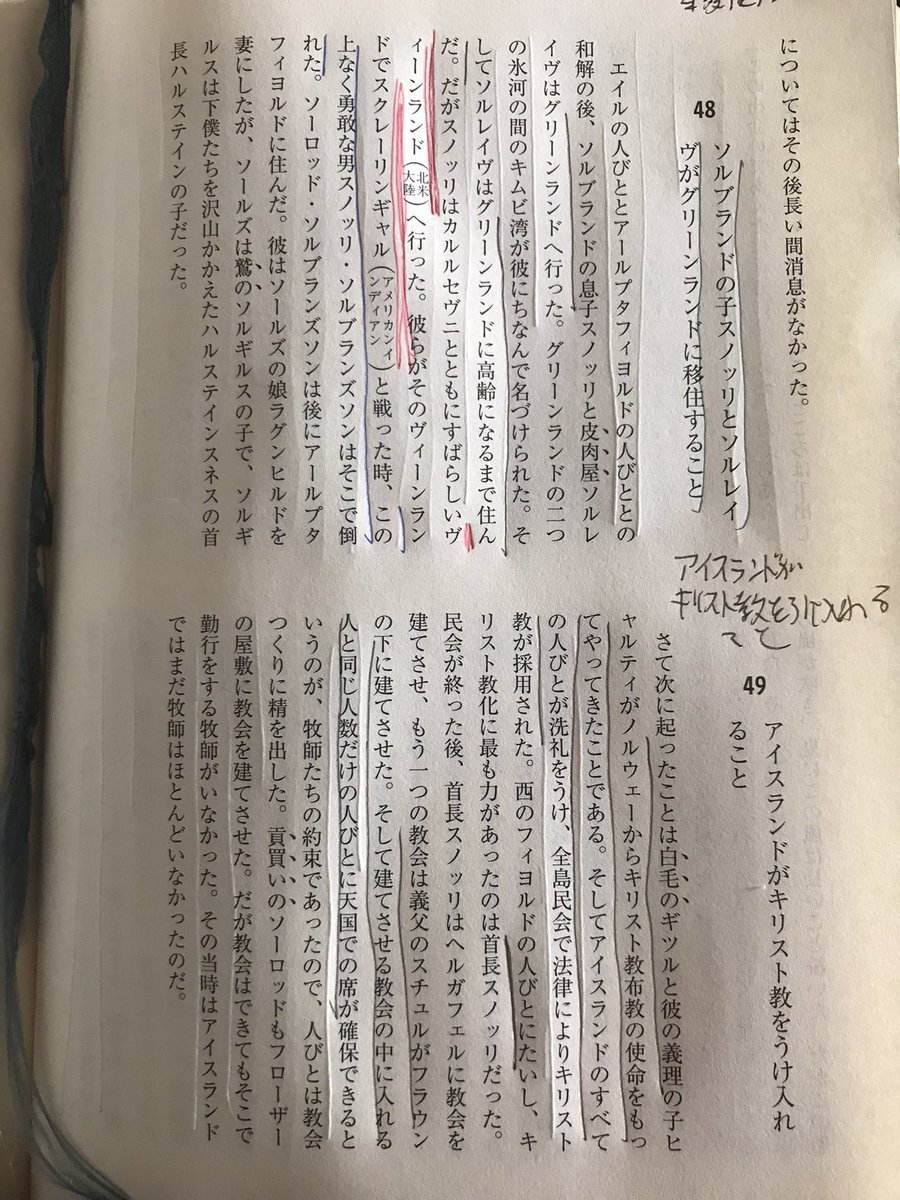 についてはその後長い間消息がなかった。
48
ソルブランドの子スノッリとソルレイ
ヴがグリーンランドに移住すること
エイルの人びととアールプタフィヨルドの人びととの
和解の後、ソルブランドの息子スノッリと皮肉屋ソルレ
イヴはグリーンランドへ行った。グリーンランドの二つ
の氷河の間のキムビ湾が彼にちなんで名づけられた。そ
してソルレイヴはグリーンランドに高齢になるまで住ん
だ。だがスノッリはカルルセヴニとともにすばらしいヴ
ィーンランド（北米大陸）へ行った。彼らがそのヴィーンラン
ドでスクレーリンギャル（アメリカンインディアン）と戦った時、この
上なく勇敢な男スノッリ・ソルブランズソンはそこで倒
れた。ソーロッド・ソルブランズソンは後にアールプタ
フィヨルドに住んだ。彼はソールズの娘ラグンヒルドを
妻にしたが、ソールズは鷲のソルギルスの子で、ソルギ
ルスは下僕たちを沢山かかえたハルステインスネスの首
長ハルステインの子だった。
アイスランドが
キリスト教を引け入れる
こと
49
アイスランドがキリスト教をうけ入れ
ること
さて次に起ったことは白毛のギツルと彼の義理の子ヒ
ャルティがノルウェーからキリスト教布教の使命をもっ
てやってきたことである。そしてアイスランドのすべて
の人びとが洗礼をうけ、全島民会で法律によりキリスト
教が採用された。西のフィヨルドの人びとにたいし、キ
リスト教化に最も力があったのは首長スノッリだった。
民会が終った後、首長スノッリはヘルガフェルに教会を
建てさせ、もう一つの教会は義父のスチュルがフラウン
の下に建てさせた。そして建てさせる教会の中に入れる
人と同じ人数だけの人びとに天国での席が確保できると
いうのが、牧師たちの約束であったので、人びとは教会
つくりに精を出した。貢買いのソーロッドもフローザー
の屋敷に教会を建てさせた。だが教会はできてもそこで
勤行をする牧師がいなかった。その当時はアイスランド
ではまだ牧師はほとんどいなかったのだ。